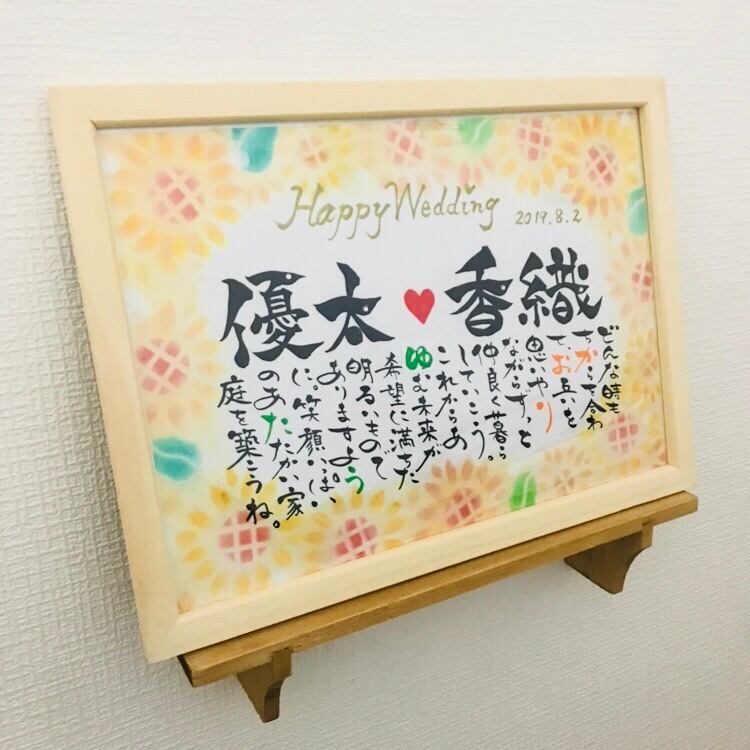 Happy Wedding
2019.8.2
優太♥香織
どんな時も
ちからを合わ
せ、お互を
思いやり
ながらずっと
仲良く暮ら
していこう。
これからあ
ゆむ未来が
希望に満ちた
明るいもので
ありますよう
に。笑顔いっぱい
のあたたかい家
庭を築こうね。